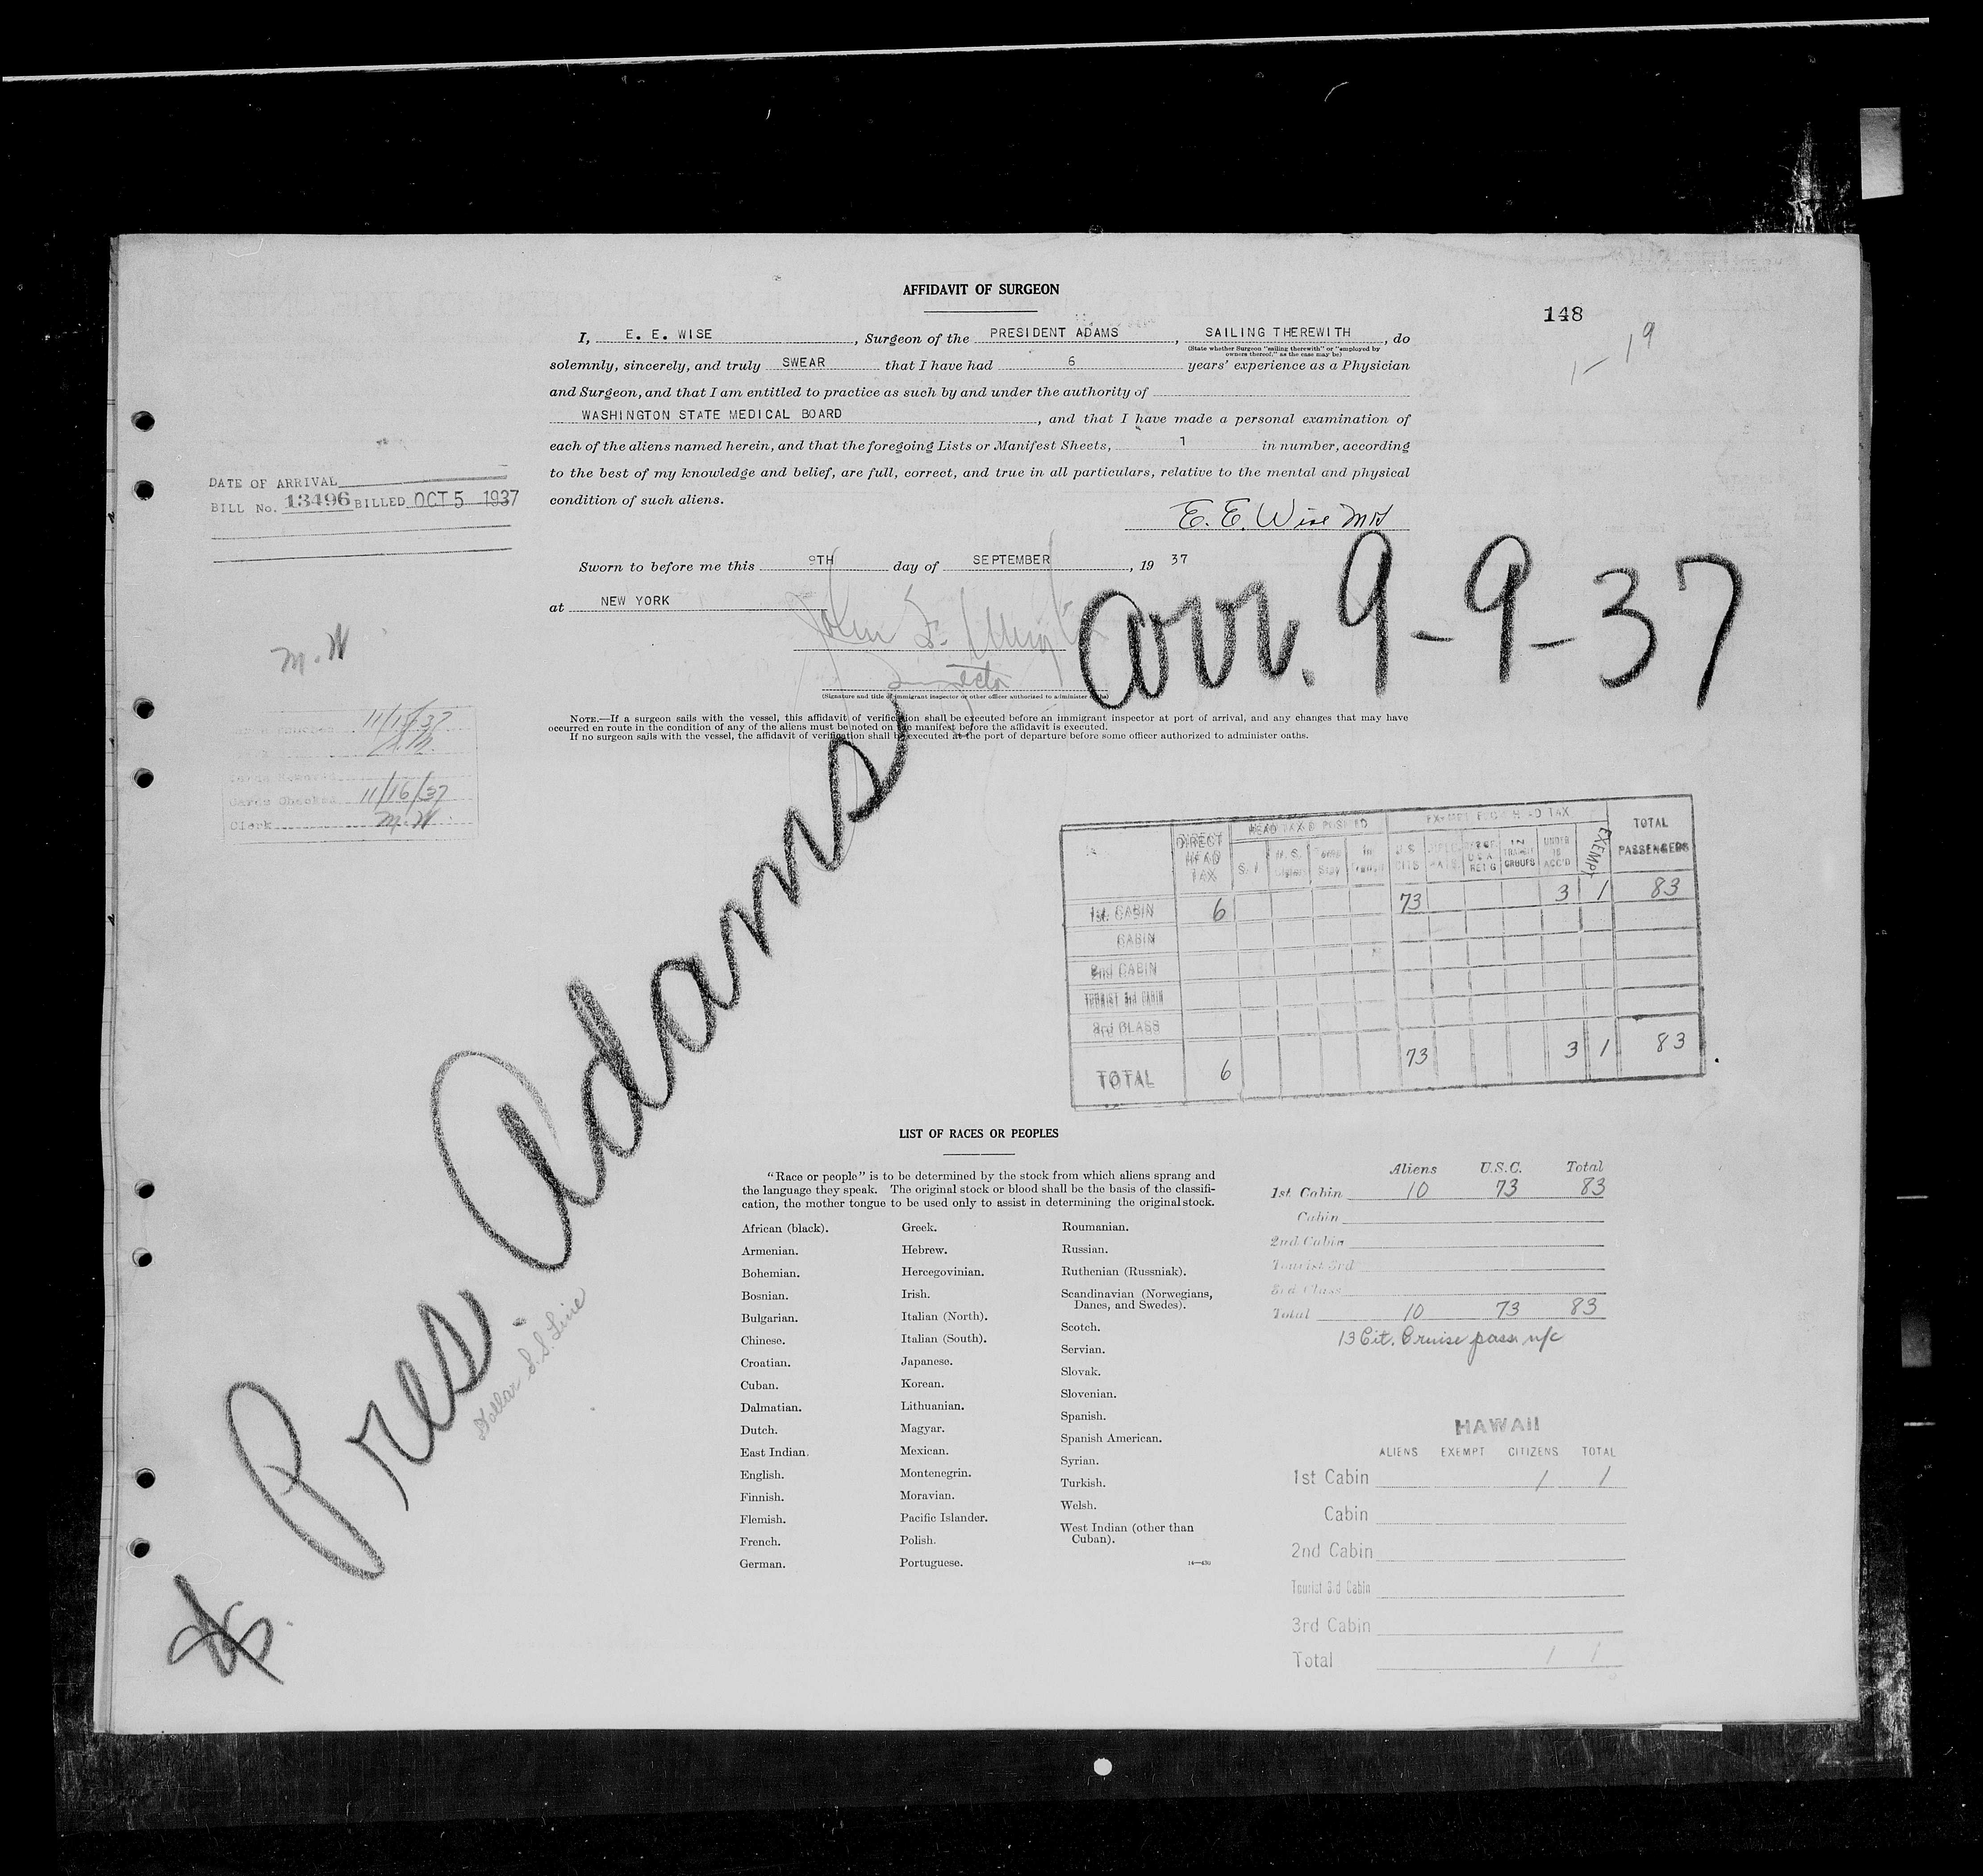 AFFIDAVIT OF SURGEON
148
1-19
I, E. E. WISE, Surgeon of the PRESIDENT ADAMS, SAILING THEREWITH, do
(State whether Surgeon "sailing therewith" or "employed by
owners thereof," as the case may be)
solemnly, sincerely, and truly SWEAR that I have had 6 years' experience as a Physician
and Surgeon, and that I am entitled to practice as such by and under the authority of
WASHINGTON STATE MEDICAL BOARD, and that I have made a personal examination of
each of the aliens named herein, and that the foregoing Lists or Manifest Sheets, 1 in number, according
to the best of my knowledge and belief, are full, correct, and true in all particulars, relative to the mental and physical
condition of such aliens.
DATE OF ARRIVAL
BILL No. 13496 BILLED OCT 5 1937
E. E. Wise MD
Sworn to before me this 9TH day of SEPTEMBER, 19 37
at NEW YORK
John
Inspector
(Signature and title of immigrant inspector or other officer authorized to administer
arr. 9-9-37
M. W
NOTE.—If a surgeon sails with the vessel, this affidavit of verification shall be executed before an immigrant inspector at port of arrival, and any changes that may have
occurred en route in the condition of any of the aliens must be noted on the manifest before the affidavit is executed.
If no surgeon sails with the vessel, the affidavit of verification shall be executed at the port of departure before some officer authorized to administer oaths.
11/15/37
Cards Checked 11/16/37
Clerk M. W
Pres. Adams
Dollar S.S. Line
DIRECT HEAD TAX
HEAD TAX DEPOSITED
EXEMPT FROM HEAD TAX
TOTAL PASSENGERS
U.S. CITS
IN TRANSIT GROUPS
UNDER 16 ACC'D
EXEMPT
1st. CABIN 6 73 3 1 83
CABIN
2nd CABIN
TOURIST 3rd CABIN
3rd CLASS
TOTAL 6 73 3 1 83
LIST OF RACES OR PEOPLES
"Race or people" is to be determined by the stock from which aliens sprang and
the language they speak. The original stock or blood shall be the basis of the classifi-
cation, the mother tongue to be used only to assist in determining the original stock.
African (black).
Armenian.
Bohemian.
Bosnian.
Bulgarian.
Chinese.
Croatian.
Cuban.
Dalmatian.
Dutch.
East Indian.
English.
Finnish.
Flemish.
French.
German.
Greek.
Hebrew.
Hercegovinian.
Irish.
Italian (North).
Italian (South).
Japanese.
Korean.
Lithuanian.
Magyar.
Mexican.
Montenegrin.
Moravian.
Pacific Islander.
Polish.
Portuguese.
Roumanian.
Russian.
Ruthenian (Russniak).
Scandinavian (Norwegians,
Danes, and Swedes).
Scotch.
Servian.
Slovak.
Slovenian.
Spanish.
Spanish American.
Syrian.
Turkish.
Welsh.
West Indian (other than
Cuban).
14—430
Aliens U.S.C. Total
1st. Cabin 10 73 83
Cabin
2nd Cabin
Tourist 3rd
3rd Class
Total 10 73 83
13 Cit. Cruise pass n/c
HAWAII
ALIENS EXEMPT CITIZENS TOTAL
1st Cabin 1 1
Cabin
2nd Cabin
Tourist 3rd Cabin
3rd Cabin
Total 1 1